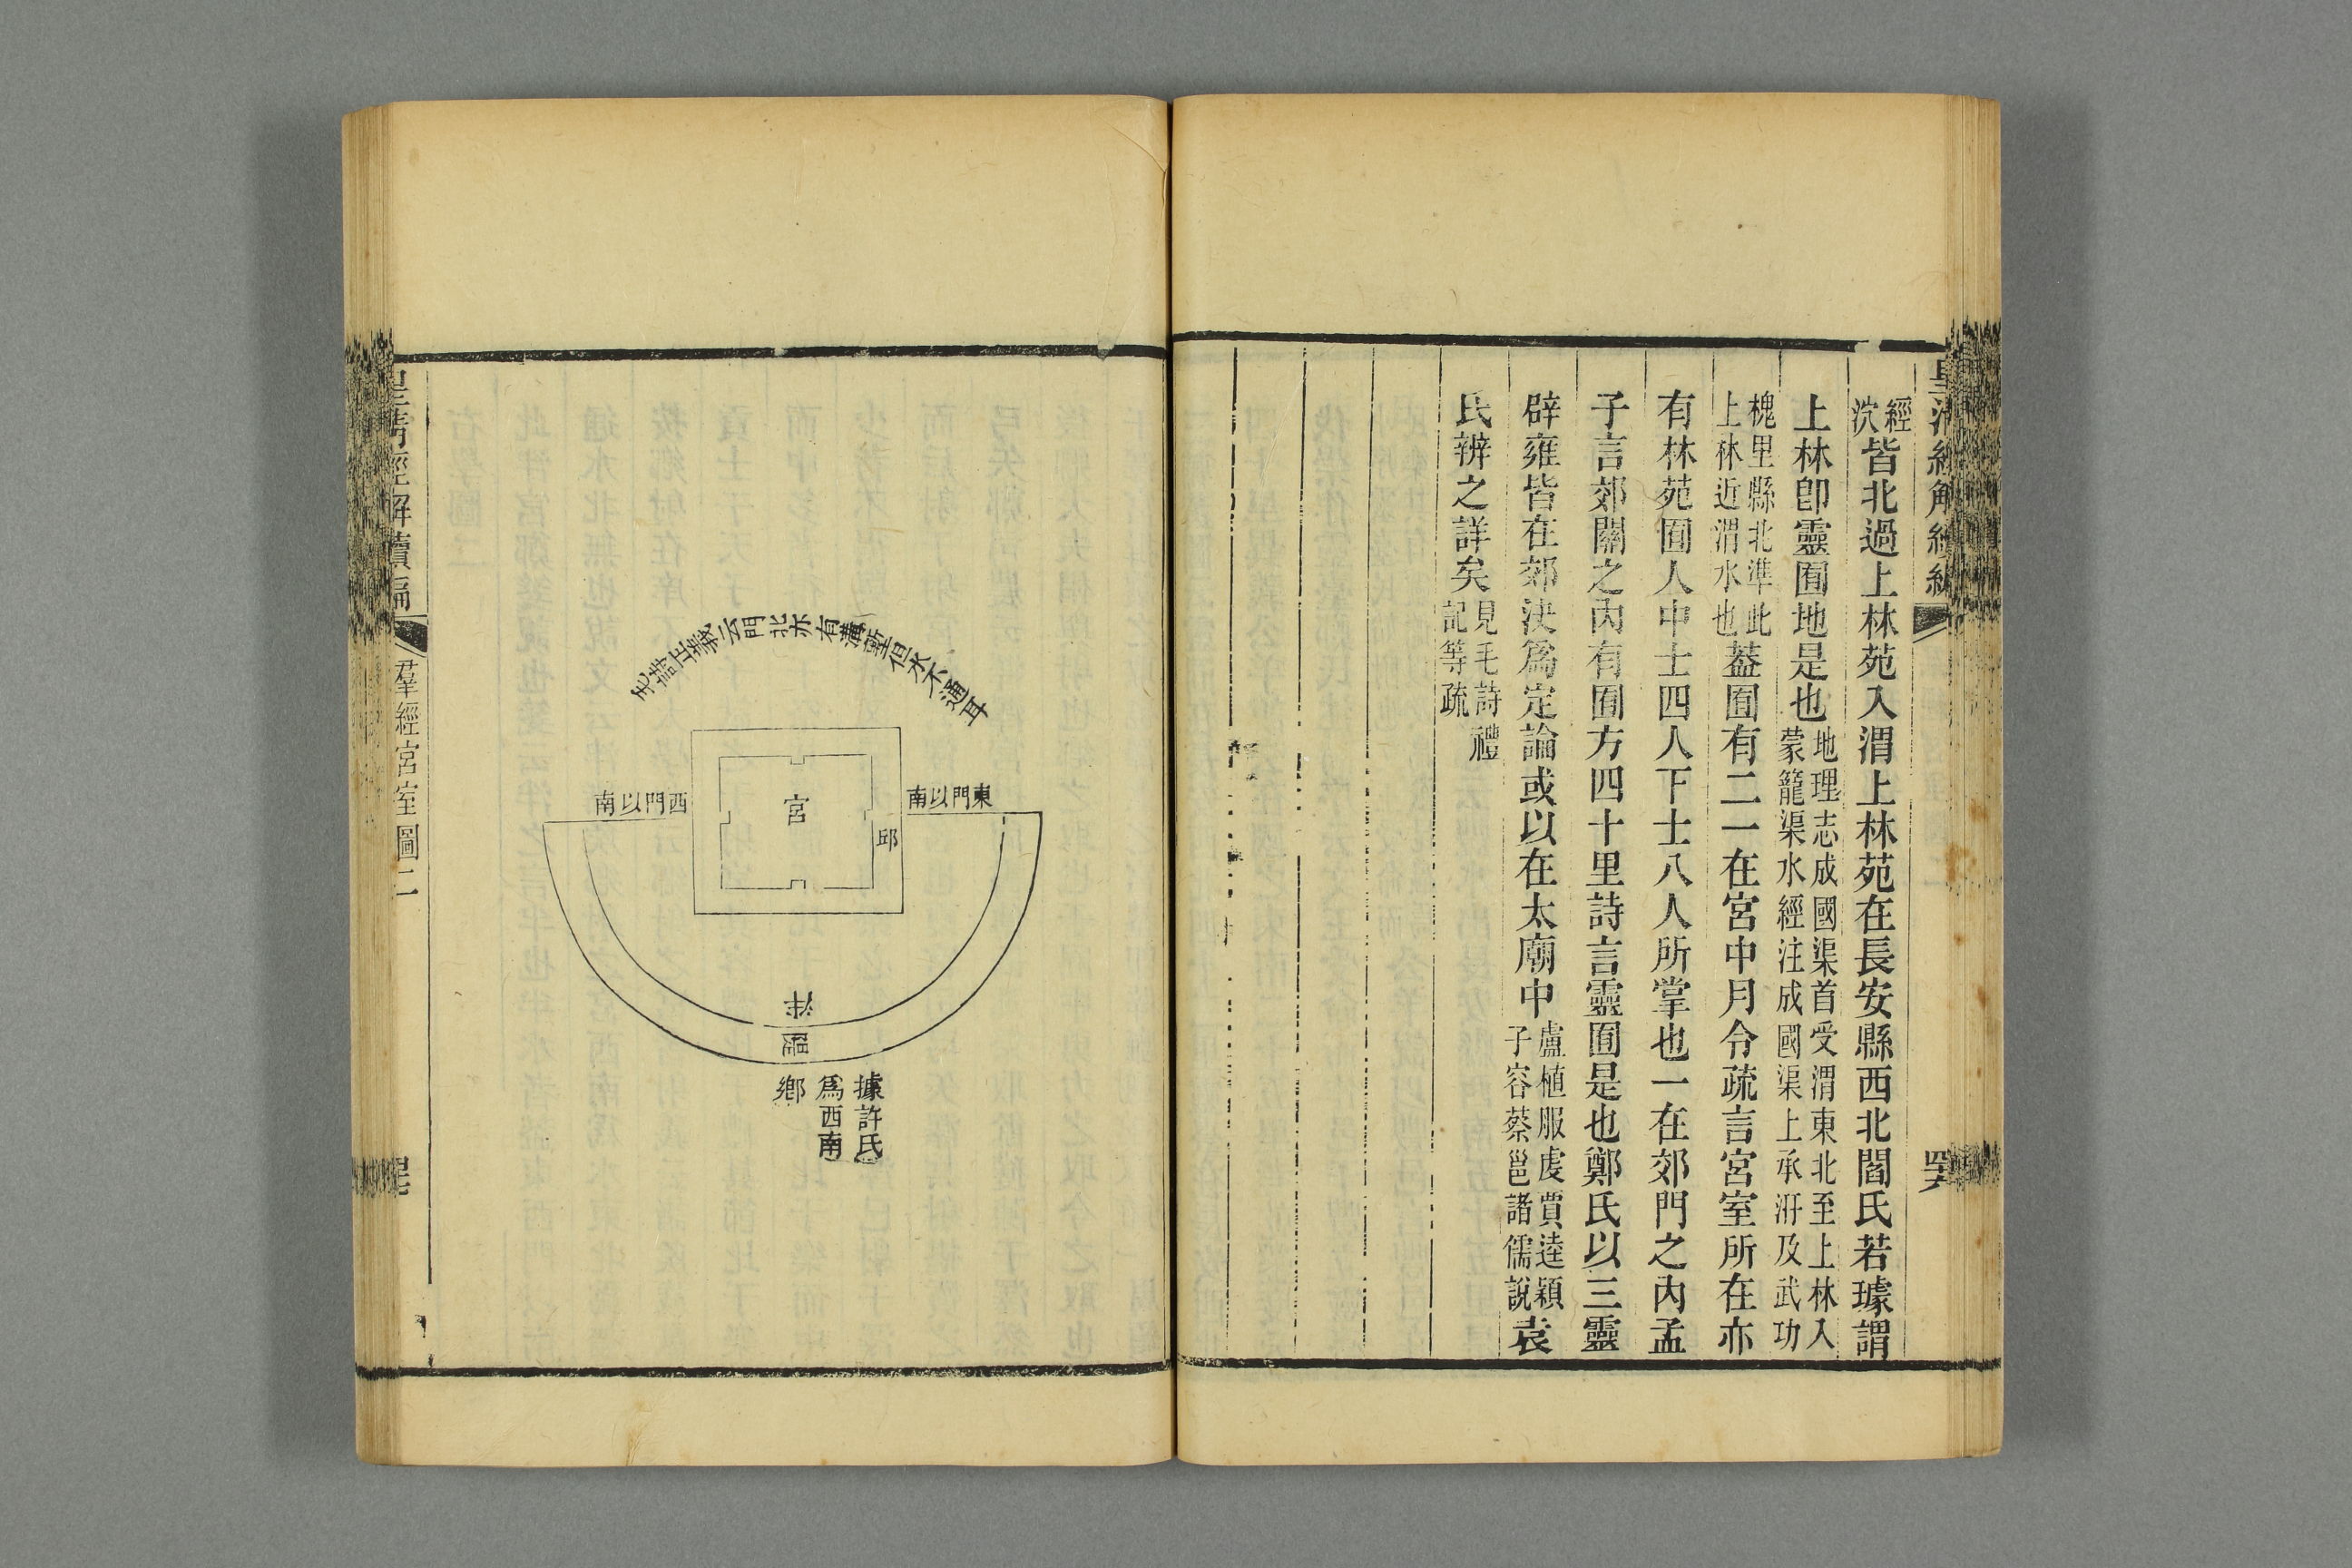 經
泬
皆北過上林苑入渭上林苑在長安縣西北閻氏若璩謂
上林卽靈囿地是也
地理志成國渠首受渭東北至上林入
蒙籠渠水經注成國渠上承汧及武功
槐里縣北準此
上林近渭水也
蓋囿有二一在宮中月令疏言宮室所在亦
有林苑囿人中士四人下士八人所掌也一在郊門之內孟
子言郊關之內有囿方四十里詩言靈囿是也鄭氏以三靈
辟雍皆在郊決爲定論或以在太廟中
盧植服虔賈逵穎
子容蔡邕諸儒說
袁
氏辨之詳矣
見毛詩禮
記等疏
毛詩正義云門北亦有溝塹但水不通耳
東門以南
西門以南
宮
邱
泮
據許氏
爲西南
鄉
皇清經解續編
羣經宮室圖二